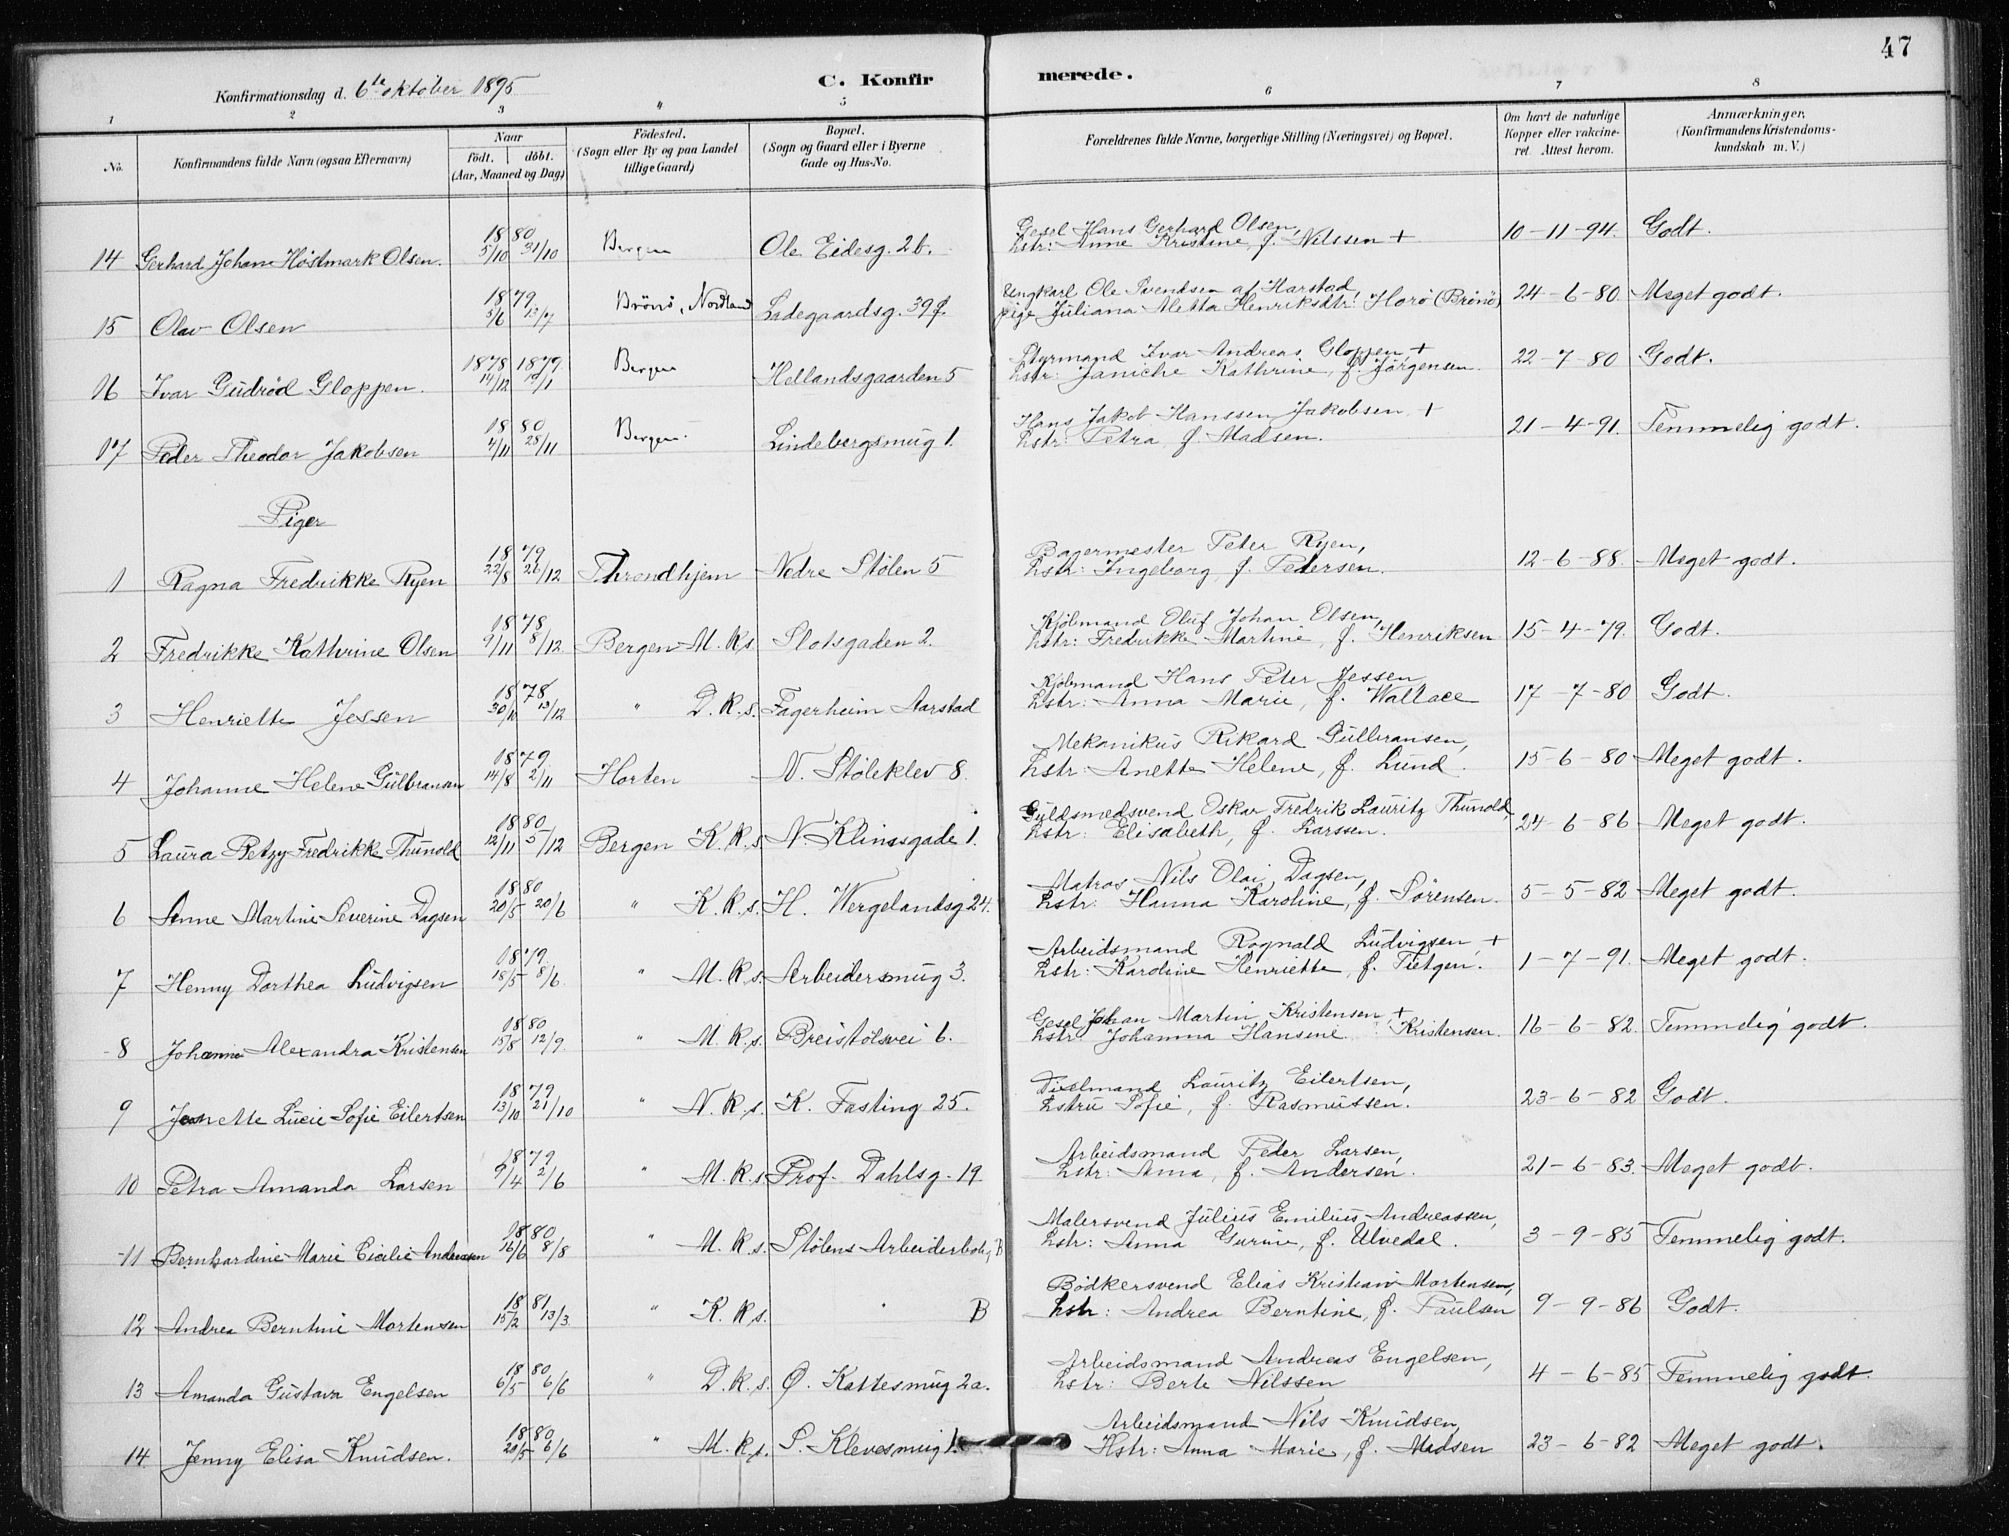 47
Konfirmationsdag d. 6te oktober 1895
C. Konfir merede.
1 2 3 " 5 6 7 8
No. Konfirmandens fulde Navn (ogsaa Efternavn) Naar födt. döbt. (Aar, Maaned og Dag) Födested. (Sogn eller By og paa Landet tillige Gaard) Bopæl. (Sogn og Gaard eller i Byerne Gade og Hus-No. Forældrenes fulde Navne, borgerlige Stilling (Næringsvei) og Bopæl. Om havt de naturlige Kopper eller vakcineret. Attest herom. Anmærkninger, (Konfirmandens Kristendomskundskab m. V.)
14 Gerhard Johan Höstmark Olsen. 1880 5/10 31/10 Bergen Ole Eidesg. 2b. Gesel Hans Gerhard Olsen, hstr: Anne Kristine, f. Nilssen + 10-11-94. Godt.
15 Olav Olsen 1879 5/6 13/7 Brönö, Nordland Ladegaardsg. 39f. Ungkarl Ole Svendsen af Harstad, pige Juliana Aletta Henriksdtr. Horö (Brönö) 24-6-80. Meget godt.
16 Ivar Gudröd Gloppen. 1878 1879 14/12 19/1 Bergen Hellandsgaarden 5 Styrmand Ivar Andreas Gloppen, + hstr: Janiche Kathrine, f. Jörgensen. 22-7-80 Godt.
17 Peder Theodor Jakobsen 1880 4/11 28/11 Bergen. Lindebergsmug 1. Hans Jakob Hanssen Jakobsen, + hstr: Petra, f. Madsen. 21-4-91. Temmelig godt.
Piger
1 Ragna Fredrikke Ryen 1879 22/8 26/12 Throndhjem Nedre Stölen 5 Bagermester Peter Ryen, hstr: Ingeborg, f. Pedersen. 12-6-88. Meget godt.
2 Fredrikke Kathrine Olsen 1878 9/11 8/12 Bergen M.k.s. Slotsgaden 2. Kjölmand Oluf Johan Olsen, hstr: Fredrikke Martine, f. Henriksen 15-4-79. Godt.
3 Henriette Jessen 1878 30/11 13/12 " D.k.s. Fagerheim Aarstad Kjölmand Hans Peter Jessen hstr: Anna Marie, f. Wallace 17-7-80 Godt.
4 Johanne Helene Gulbransen 1879. 14/8 2/11 Horten N. Stöleklev 8. Mekanikus Rikard Gulbransen, hstr: Anette Helene, f. Lund. 15-6-80 Meget godt.
5 Laura Betzy Fredrikke Thunold 1880 12/11 5/12 Bergen K.k.s. N. Klinesgade 1. Guldsmedsvend Oskar Fredrik Lauritz Thunold hstr: Elisabeth, f. Larssen. 24-6-86 Meget godt.
6 Anne Martine Severine Dagsen 1880 20/5 20/6 " K.k.s. H. Wergelandsg 24. Matros Nils Olai Dagsen, hstr: Hanna Karoline, f. Sörensen. 5-5-82 Meget godt.
7 Henny Dorthea Ludvigsen 1879. 18/5 8/6. " M.k.s. Arbeidersmug 3. Arbeidsmand Ragnald Ludvigsen, + hstr: Karoline Henriette, f. Tietgen. 1-7-91. Meget godt.
8 Johanne Alexandra Kristensen 1880 15/8 12/9. " M.k.s. Breistölsvei 6. Gesel Johan Martin Kristensen + hstr Johanna Hansine Kristensen. 16-6-82. Temmelig godt.
9 Jeanette Lucie Sofie Eilertsen 1879 13/10 21/10 " N.k.s. K. Fasting 25. Dixelmand Lauritz Eilertsen, hstru Sofie, f. Rasmussen. 23-6-82 Godt.
10 Petra Amanda Larsen 1879 9/4 2/6 " M.k.s Prof. Dahlsg. 19 Arbeidsmand Peder Larsen, hstr: Anna, f. Andersen. 21-6-83. Meget godt.
11 Bernhardine Marie Cicilie Andersen 1880 16/6 8/8 " M.k.s. Stölens Arbeiderbol, B Malersvend Julius Emilius Andreassen, hstr: Anna Gurine, f. Ulvedal. 3-9-85 Temmelig godt.
12 Andrea Berntine Mortensen 1881 15/2 13/3 " K.k.s. " B Bödkersvend Elias Kristian Mortensen, hstr: Andrea Berntine, f. Paulsen 9-9-86 Godt.
13 Amanda Gustava Engelsen 1880 6/5 6/6 " D.k.s. Ö. Kattesmug 2a. Arbeidsmand Andreas Engelsen, hstr: Berte Nilssen 4-6-85 Temmelig godt.
14. Jenny Elisa Knudsen. 1880 20/5 6/6 " M.k.s. S. Klevesmug 1. Arbeidsmand Nils Knudsen, Hstr: Anna Marie, f. Madsen 23-6-82 Meget godt.